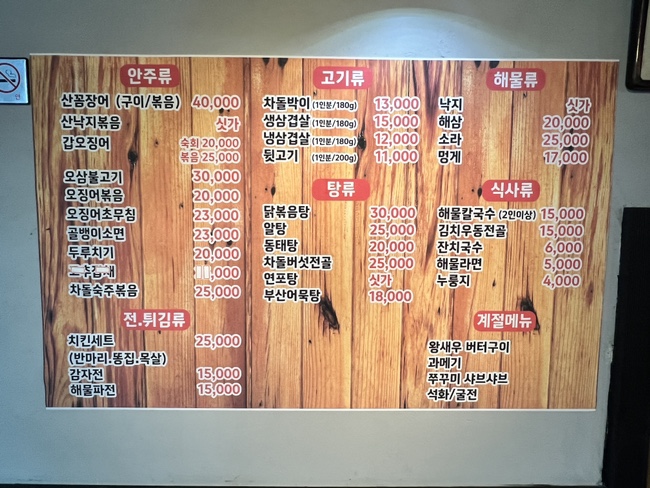 안주류
산꼼장어 (구이/볶음) 40,000
산낙지볶음 싯가
갑오징어 숙회 20,000
볶음 25,000
오삼불고기 30,000
오징어볶음 20,000
오징어초무침 23,000
골뱅이소면 23,000
두루치기 20,000
,000
차돌숙주볶음 25,000
전.튀김류
치킨세트 25,000
(반마리.똥집.목살)
감자전 15,000
해물파전 15,000
고기류
차돌박이 (1인분/180g) 13,000
생삼겹살 (1인분/180g) 15,000
냉삼겹살 (1인분/180g) 12,000
뒷고기 (1인분/200g) 11,000
탕류
닭볶음탕 30,000
알탕 25,000
동태탕 20,000
차돌버섯전골 25,000
연포탕 싯가
부산어묵탕 18,000
해물류
낙지 싯가
해삼 20,000
소라 25,000
멍게 17,000
식사류
해물칼국수 (2인이상) 15,000
김치우동전골 15,000
잔치국수 6,000
해물라면 5,000
누룽지 4,000
계절메뉴
왕새우 버터구이
과메기
쭈꾸미 샤브샤브
석화/굴전